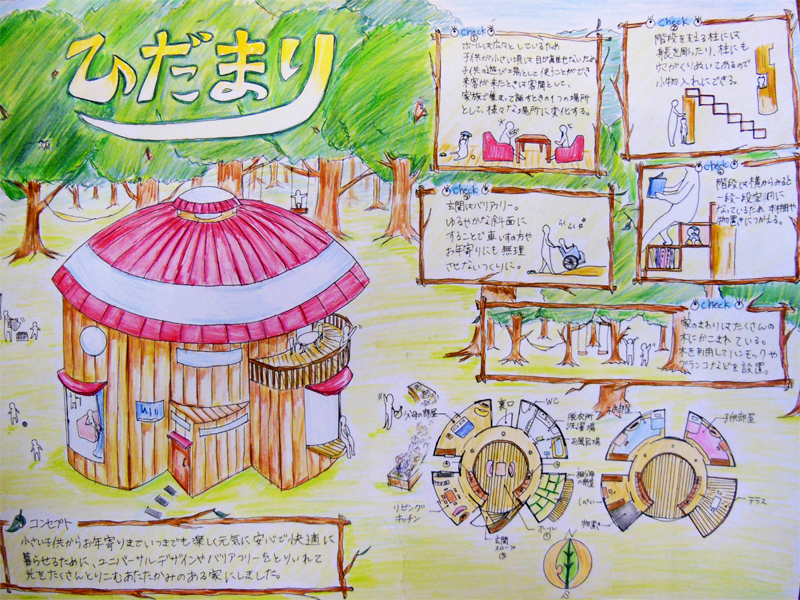 ひだまり
Check
ホールは広々としているため
子供が小さい頃は目が離せないため
子供の遊び場として使うことができ
来客が来たときは客間として、
家族で集まって話すときの1つの場所
として、様々な場所に変化する。
Check
階段を支える柱には
身長を彫ったり、柱にも
穴がくりぬいてあるので
小物入れにできる。
Check
玄関はバリアフリー。
ゆるやかな斜面に
することで車いすの方や
お年寄りにも無理
させないつくりに。
Check
階段は横からみると
一段一段空洞に
なっているため、本棚や
物置きにつかえる。
Check
家のまわりはたくさんの
木にかこまれている。
木を利用してハンモックや
ブランコなどを設置。
父母の部屋
裏口
WC
脱衣所
洗濯場
お風呂場
リビング
キッチン
玄関
ホール
子供部屋
テラス
物置き
N
S
コンセプト
小さい子供からお年寄りまでいつまでも楽しく元気に安心で快適に
暮らせるために、ユニバーサルデザインやバリアフリーをとりいれて
光をたくさんとりこむあたたかみのある家にしました。